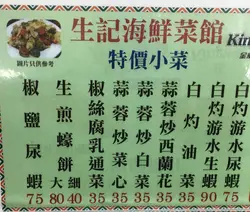 生記海鮮菜館
Kin
特價小菜
圖片只供參考
椒鹽尿蝦 75
生煎蠔餅 大 80 細 40
椒絲腐乳通菜 35
蒜蓉炒菜心 35
蒜蓉炒白菜 35
蒜蓉炒西蘭花 35
白灼油菜 35
白灼游水生蝦 90
白灼游水尿蝦 75